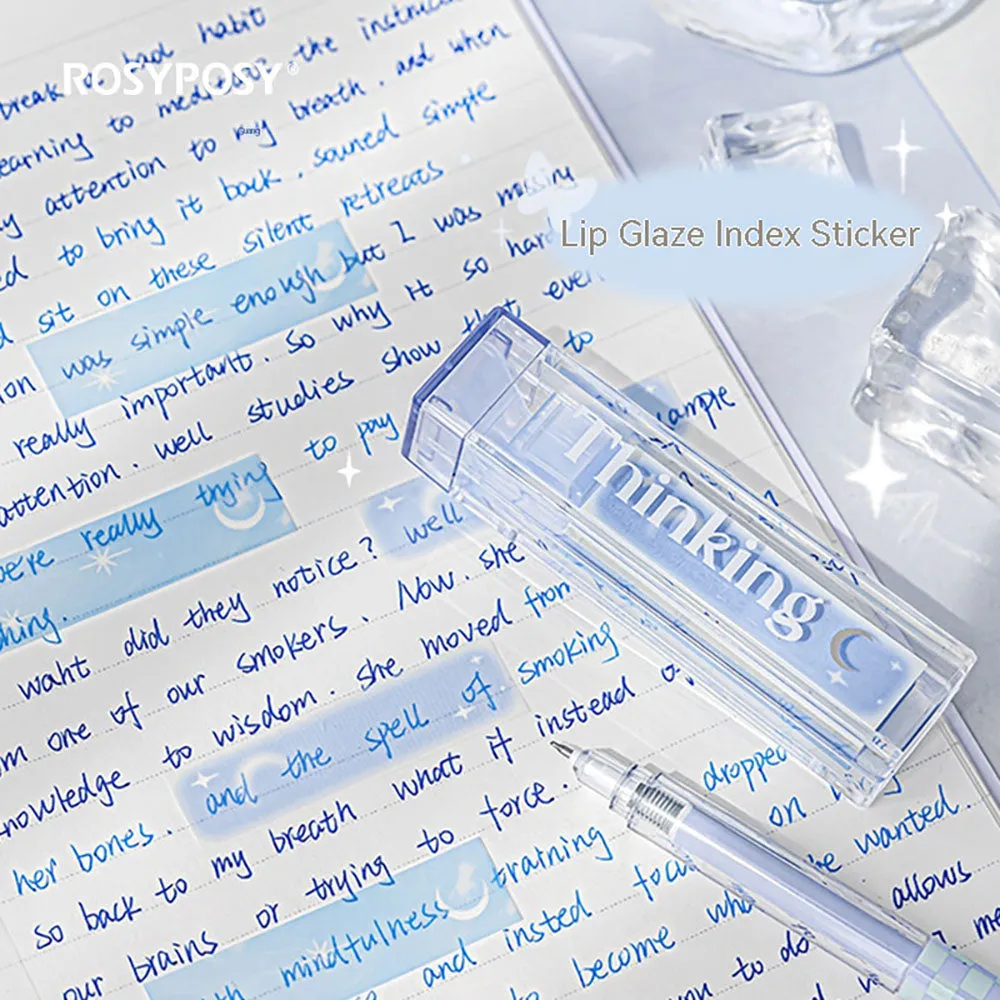 break a bad habit
ROSYPOSY®
learning to meditate, the instruction
my attention to my breath, and when
to bring it back, sauned simple
sit on these silent retreats
was simple enough but I was missing
really important. So why it so hard
attention. well studies show that even
to
we're really trying to pay
example
thing.
waht did they notice? well
one of our smokers. Now. she
knowledge to wisdom. she moved from
her bones. and the spell of smoking
so back to my breath what if instead of
our brains or trying to force.
dropped
mindfulness training
and insted
on
wanted.
become
allows
to
Lip Glaze Index Sticker
Thinking